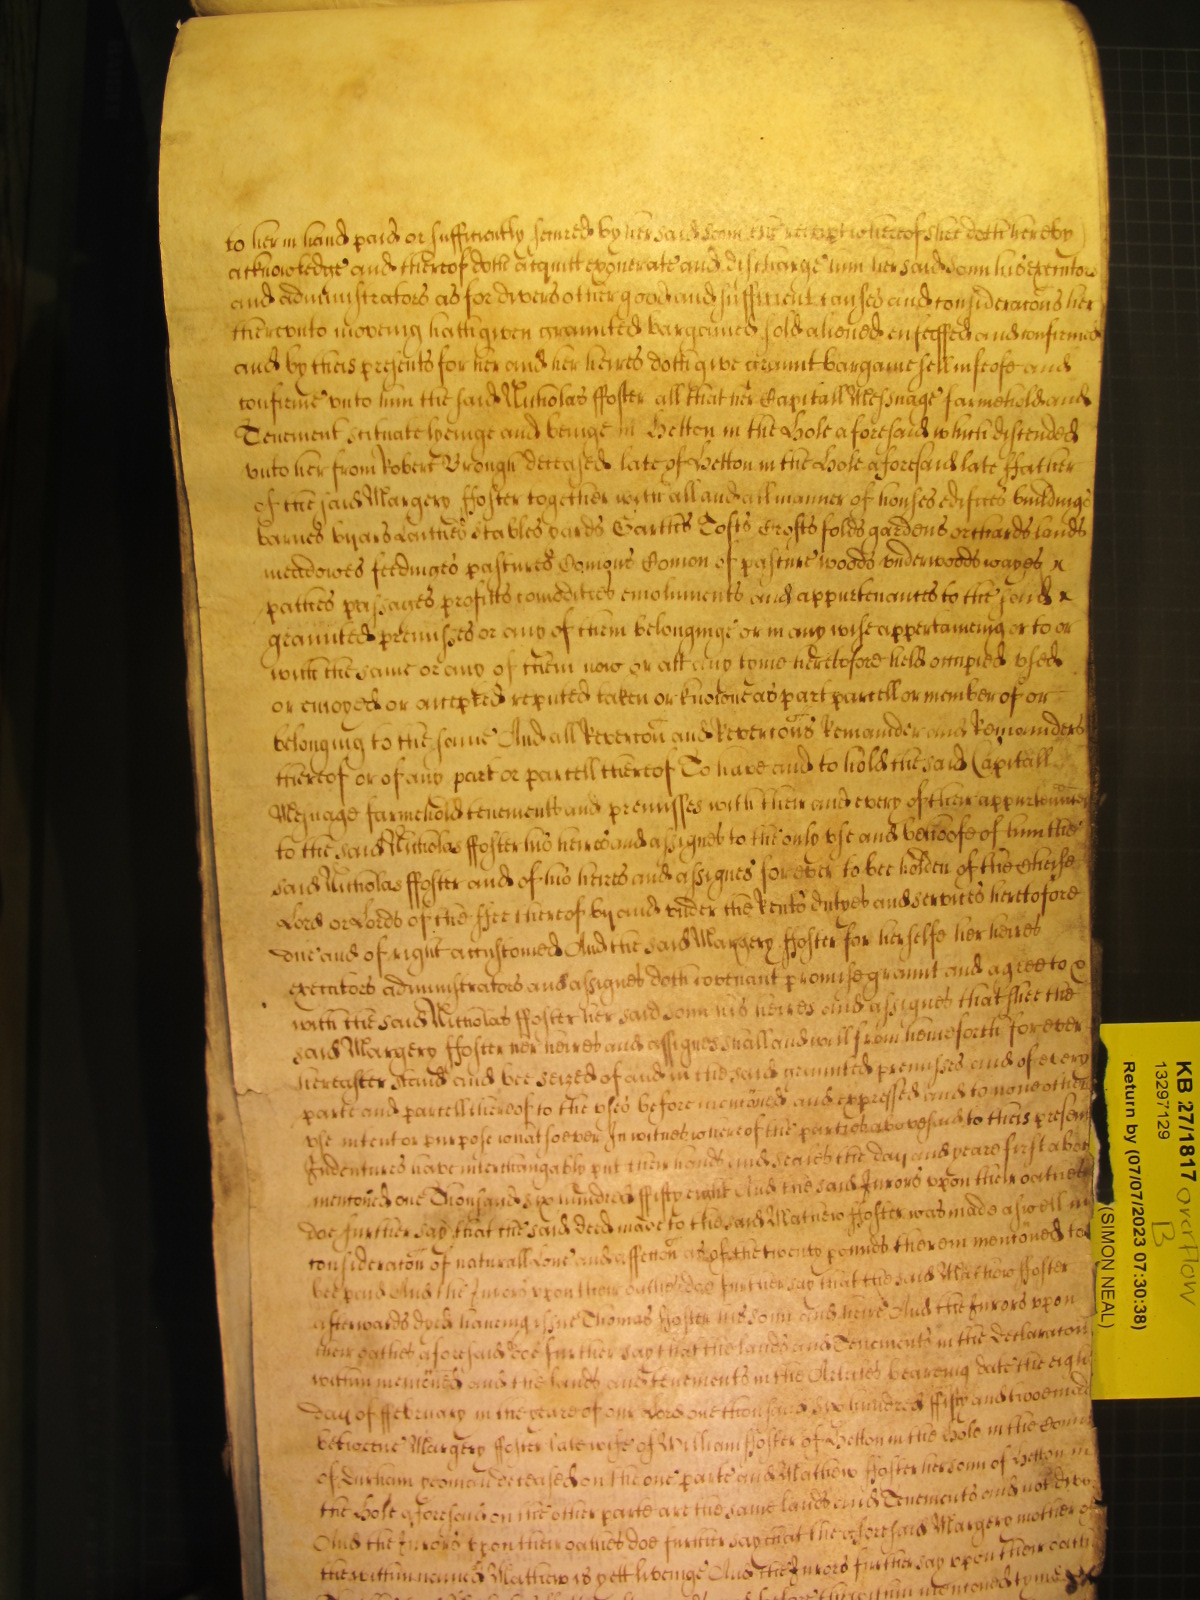 to her in hand paid or sufficiently secured by her said sonn the receipt whereof shee doth hereby
acknowledge and thereof doth acquitt exonerate and discharge him her said sonn his executors
and administrators as for divers other good and sufficient causes and consideracons her
therevnto moveing hath given graunted bargained sold aliened enfeoffed and confirmed
and by theis presents for her and her heires doth give graunt bargaine sell infeofe and
confirme vnto him the said Nicholas ffoster all that her Capitall Messuage farmehold and
Tenement scituate lyeinge and beinge in Hetton in the Hole aforesaid which distended
vnto her from Robert Brough deceased late of Hetton in the Hole aforesaid late ffather
of the said Margery ffoster together with all and all manner of houses edifices buildings
barnes byars Laithes stables yards Garthes Tofts Crofts folds gardens orchards lands
meadowes feedings pastures Comons Comon of pasture woods vnderwoods wayes
pathes passages profitts comodities emoluments and appurtenances to the said
graunted premisses or any of them belonginge or in any wise apperteineing or to or
with the same or any of them now or att any tyme heretofore held occupied vsed
or enioyed or accepted reputed taken or knowne as part parcell or member of or
belonging to the same And all Revercon and Revercons Remainder and Remainders
thereof or of any part or parcell thereof To have and to hold the said Capitall
Messuage farmehold tenements and premisses with their and every of their appurtenances
to the said Nicholas ffoster his heires and assignes to the only vse and behoofe of him the
said Nicholas ffoster and of his heires and assignes for ever to bee holden of the Cheife
Lord or Lords of the ffee thereof by and vnder the Rents dutyes and services heretofore
due and of right accustomed And the said Margery ffoster for herselfe her heires
executors administrators and assignes doth covenant promise graunt and agree to &
with the said Nicholas ffoster her said sonn his heires and assignes that shee the
said Margery ffoster her heires and assignes shall and will from henceforth for ever
hereafter stand and bee seized of and in the said graunted premisses and of every
parte and parcell thereof to the vses before menconed and expressed and to none other
vse intent or purpose whatsoever In witnes whereof the parties abovesaid to theis present
Indentures have interchangably put their hands and seales the day and yeare first above
menconed one Thousand six hundred ffifty eight And the said Jurors vpon their oathes
doe further say that the said deed made to the said Mathew ffoster was made aswell in
consideracon of naturall Love and affeccon as of the twenty pounds therein menconed to
bee paid And the Jurors vpon their oathes doe further say that the said Mathew ffoster
afterwards dyed haveing issue Thomas ffoster his sonn and heire And the Jurors vpon
their oathes aforesaid doe further say that the lands and Tenements in the Declaracon
within menconed and the lands and tenements in the Articles beareing date the eight
day of ffebruary in the yeare of our Lord one thousand six hundred ffifty and two made
betweene Margery ffoster late wife of William ffoster of Hetton in the Hole in the County
of Durham yeoman deceased on the one parte and Mathew ffoster her sonn of Hetton in
the Hole aforesaid on the other parte are the same lands and Tenements and not divers
And the Jurors vpon their oathes doe further say that the aforesaid Margery mother of
the within named Matthew is yett liveinge And the Jurors further say vpon their oathes
before the within menconed tyme
KB 27/1817 overflow
B
13297129
Return by (07/07/2023 07:30:38)
(SIMON NEAL)